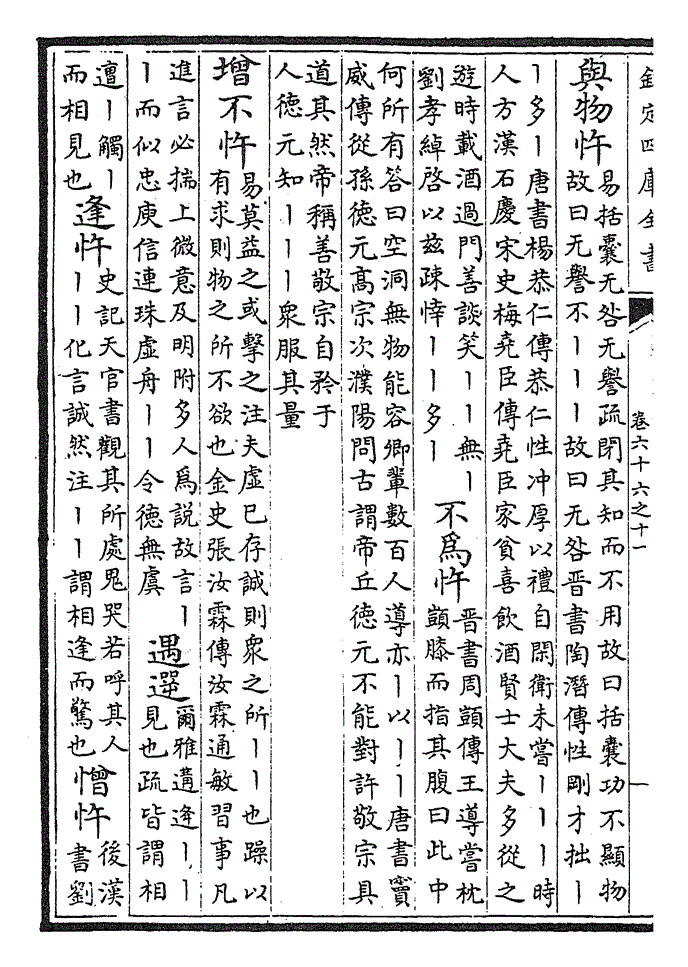 欽定四庫全書
卷六十六之十一
一
與物忤
易括囊无咎无譽疏閉其知而不用故曰括囊功不顯物
故曰无譽不丨丨丨故曰无咎晉書陶潛傳性剛才拙丨
丨多丨唐書楊恭仁傳恭仁性冲厚以禮自閑衛未嘗丨丨丨時
人方漢石慶宋史梅堯臣傳堯臣家貧喜飲酒賢士大夫多從之
遊時載酒過門善談笑丨丨無丨
劉孝綽啓以兹疎倖丨丨多丨
不爲忤
晉書周顗傳王導嘗枕
顗膝而指其腹曰此中
何所有答曰空洞無物能容卿輩數百人導亦丨以丨丨唐書竇
威傳從孫德元高宗次濮陽問古謂帝丘德元不能對許敬宗具
道其然帝稱善敬宗自矜于
人德元知丨丨丨衆服其量
增不忤
易莫益之或擊之注夫虛已存誠則衆之所丨丨也躁以
有求則物之所不欲也金史張汝霖傳汝霖通敏習事凡
進言必揣上微意及明附多人爲說故言丨
丨而似忠庾信連珠虛舟丨丨令德無虞
遇遻
爾雅遘逢丨丨
見也疏皆謂相
遭丨觸丨
而相見也
逢忤
史記天官書觀其所處鬼哭若呼其人
丨丨化言誠然注丨丨謂相逢而驚也
憎忤
後漢
書劉